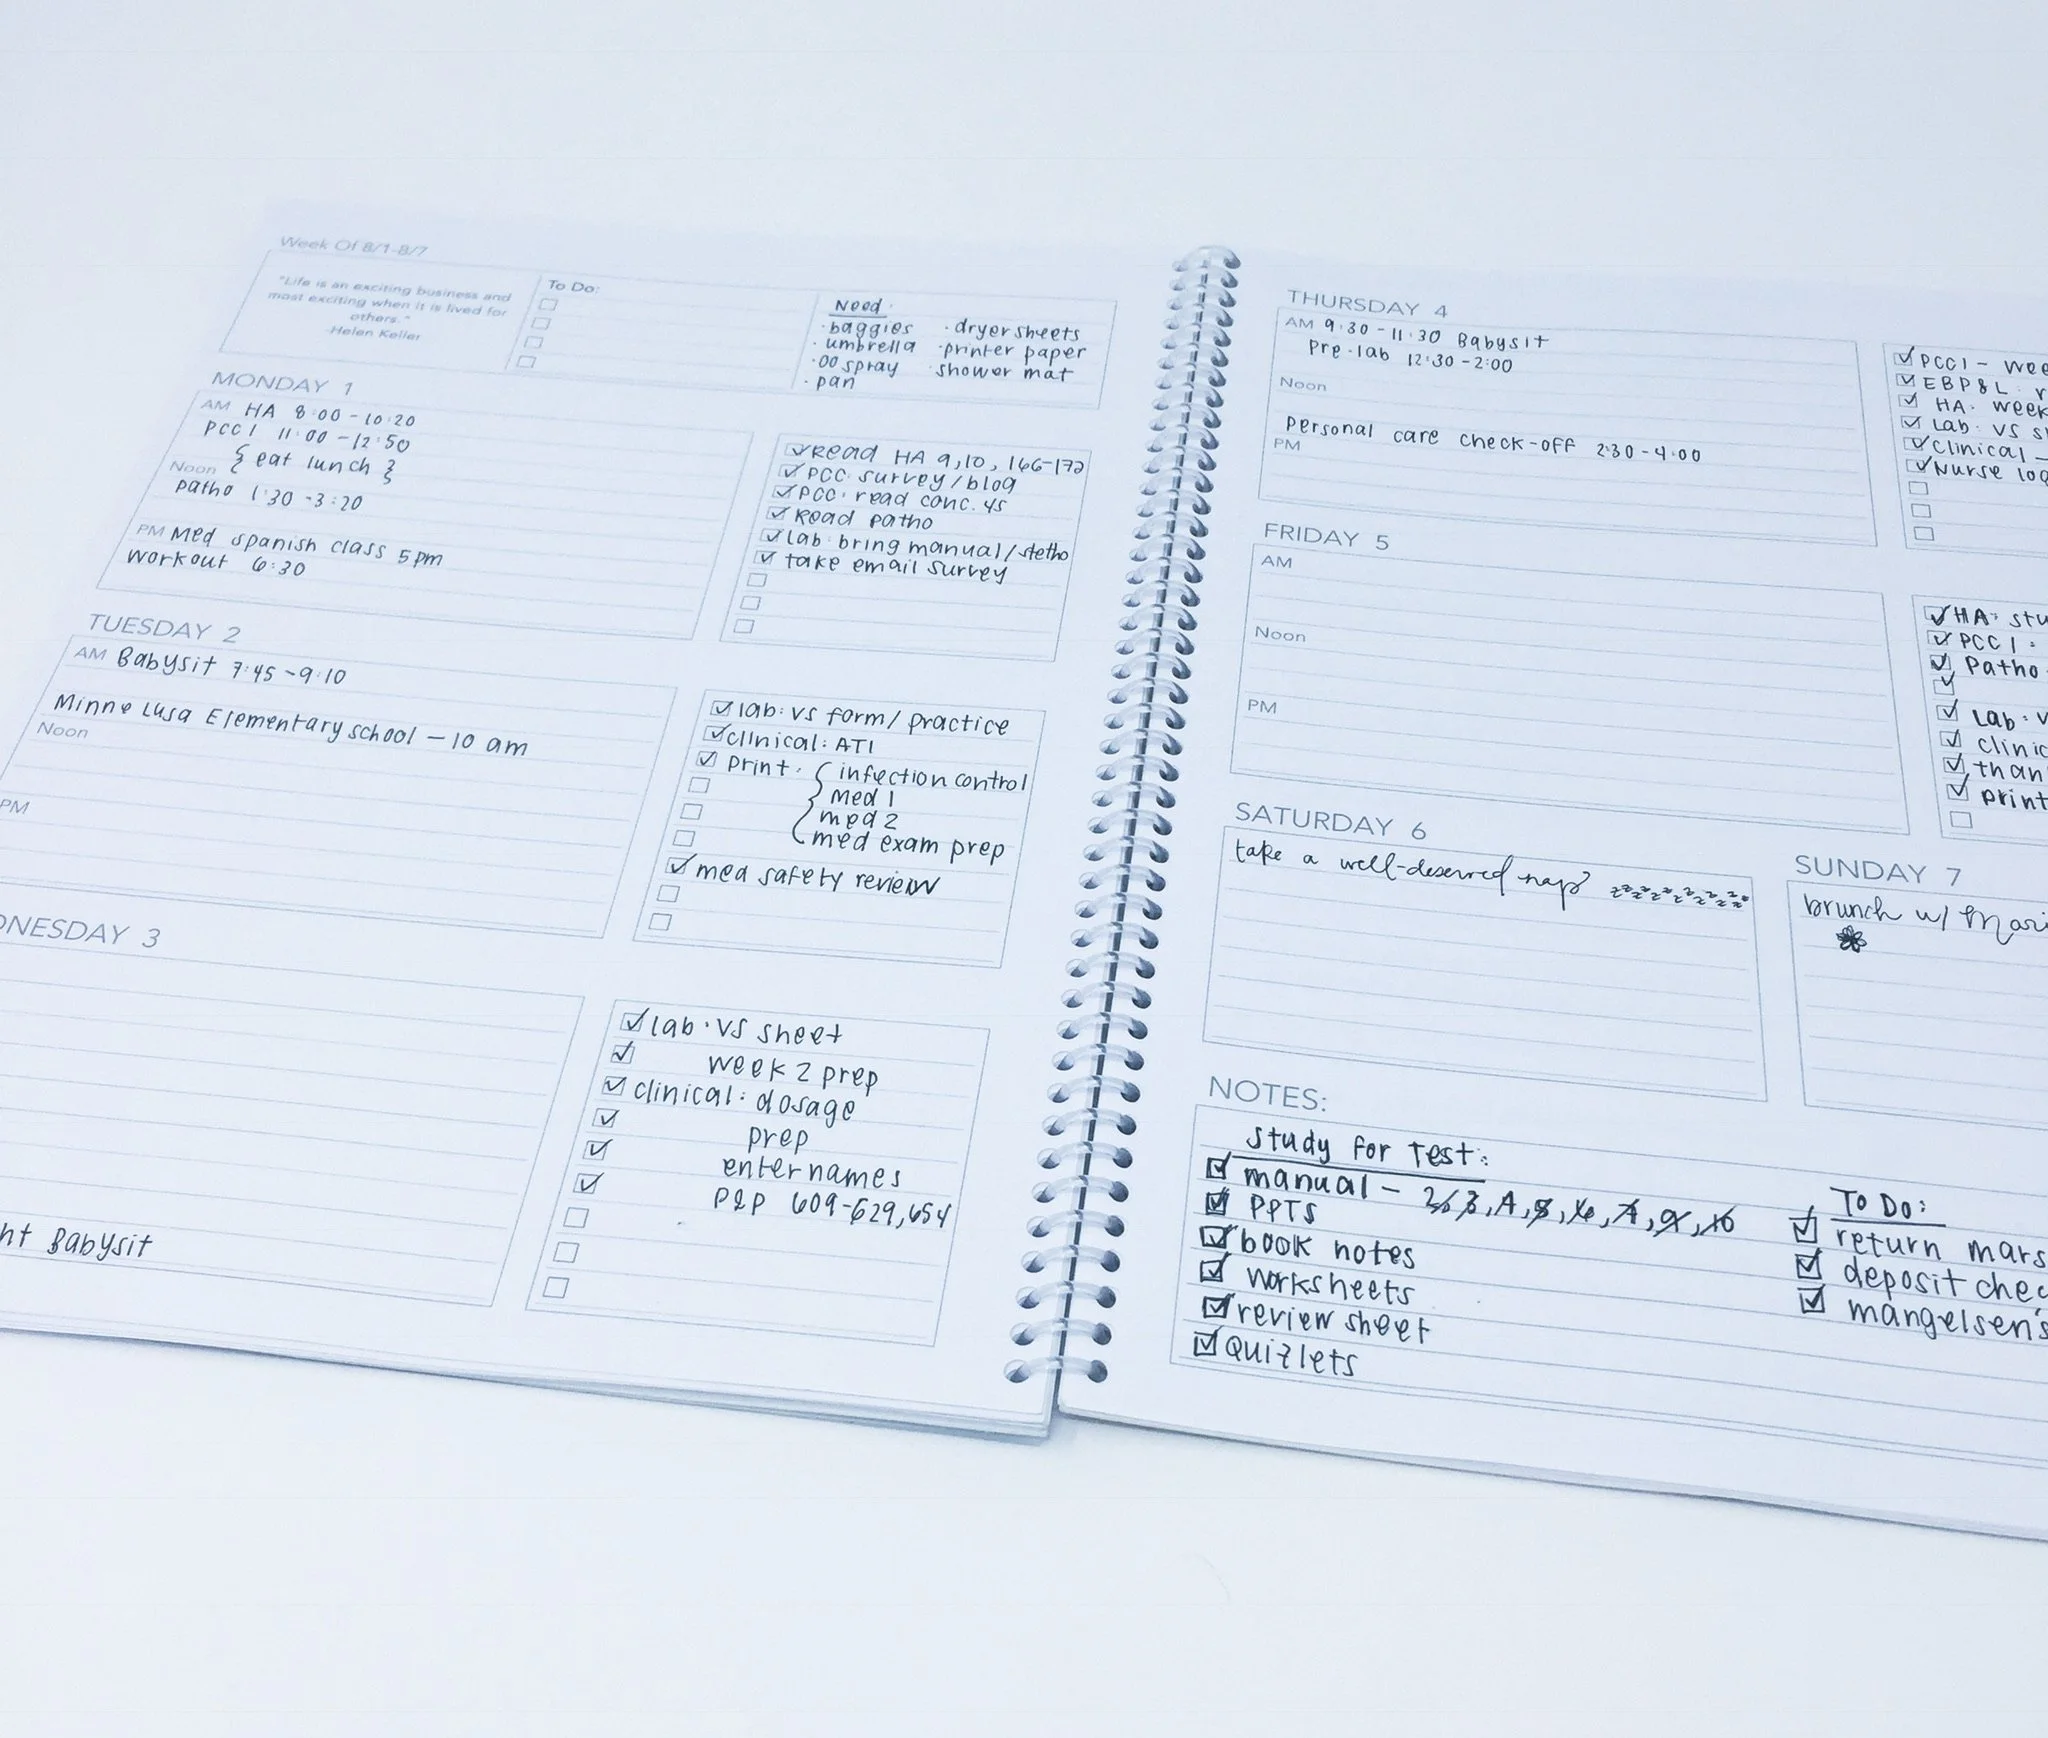 Week Of 8/1-8/7
"Life is an exciting business and
most exciting when it is lived for
others."
-Helen Keller
To Do:
Need:
· baggies
· umbrella
· 00 spray
· pan
· dryer sheets
· printer paper
· shower mat
MONDAY 1
AM HA 8:00-10:20
PCC1 11:00-12:50
{ eat lunch }
Noon
patho 1:30-3:20
PM Med spanish class 5pm
workout 6:30
Read HA 9,10, 166-172
PCC: survey/blog
PCC: read conc. 45
Read patho
lab: bring manual/stetho
take email survey
TUESDAY 2
AM Babysit 7:45-9:10
Minne Lusa Elementary school - 10 am
Noon
PM
lab: VS form/practice
clinical: ATI
print: { infection control
med 1
med 2
med exam prep
med safety review
DNESDAY 3
ht Babysit
lab: VS sheet
week 2 prep
clinical: dosage
prep
enter names
P&P 609-629, 654
THURSDAY 4
AM 9:30-11:30 Babysit
Pre-lab 12:30-2:00
Noon
personal care check-off 2:30-4:00
PM
PCC1 - wee
EBP&L: r
HA: week
Lab: VS s
Clinical -
Nurse log
FRIDAY 5
AM
Noon
PM
HA: stu
PCC1:
Patho
Lab: V
clinic
than
print
SATURDAY 6
take a well-deserved nap zzzzzzzzzz
SUNDAY 7
brunch w/ Mari
NOTES:
study for Test:
manual - 2/3, 4, 5, 6, 7, 9, 10
PPTS
book notes
worksheets
review sheet
Quizlets
To Do:
return mars
deposit chec
mangelsen's